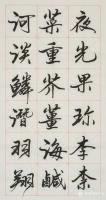 夜光果珎李柰
菜重芥薑海鹹
河淡鱗潛羽翔